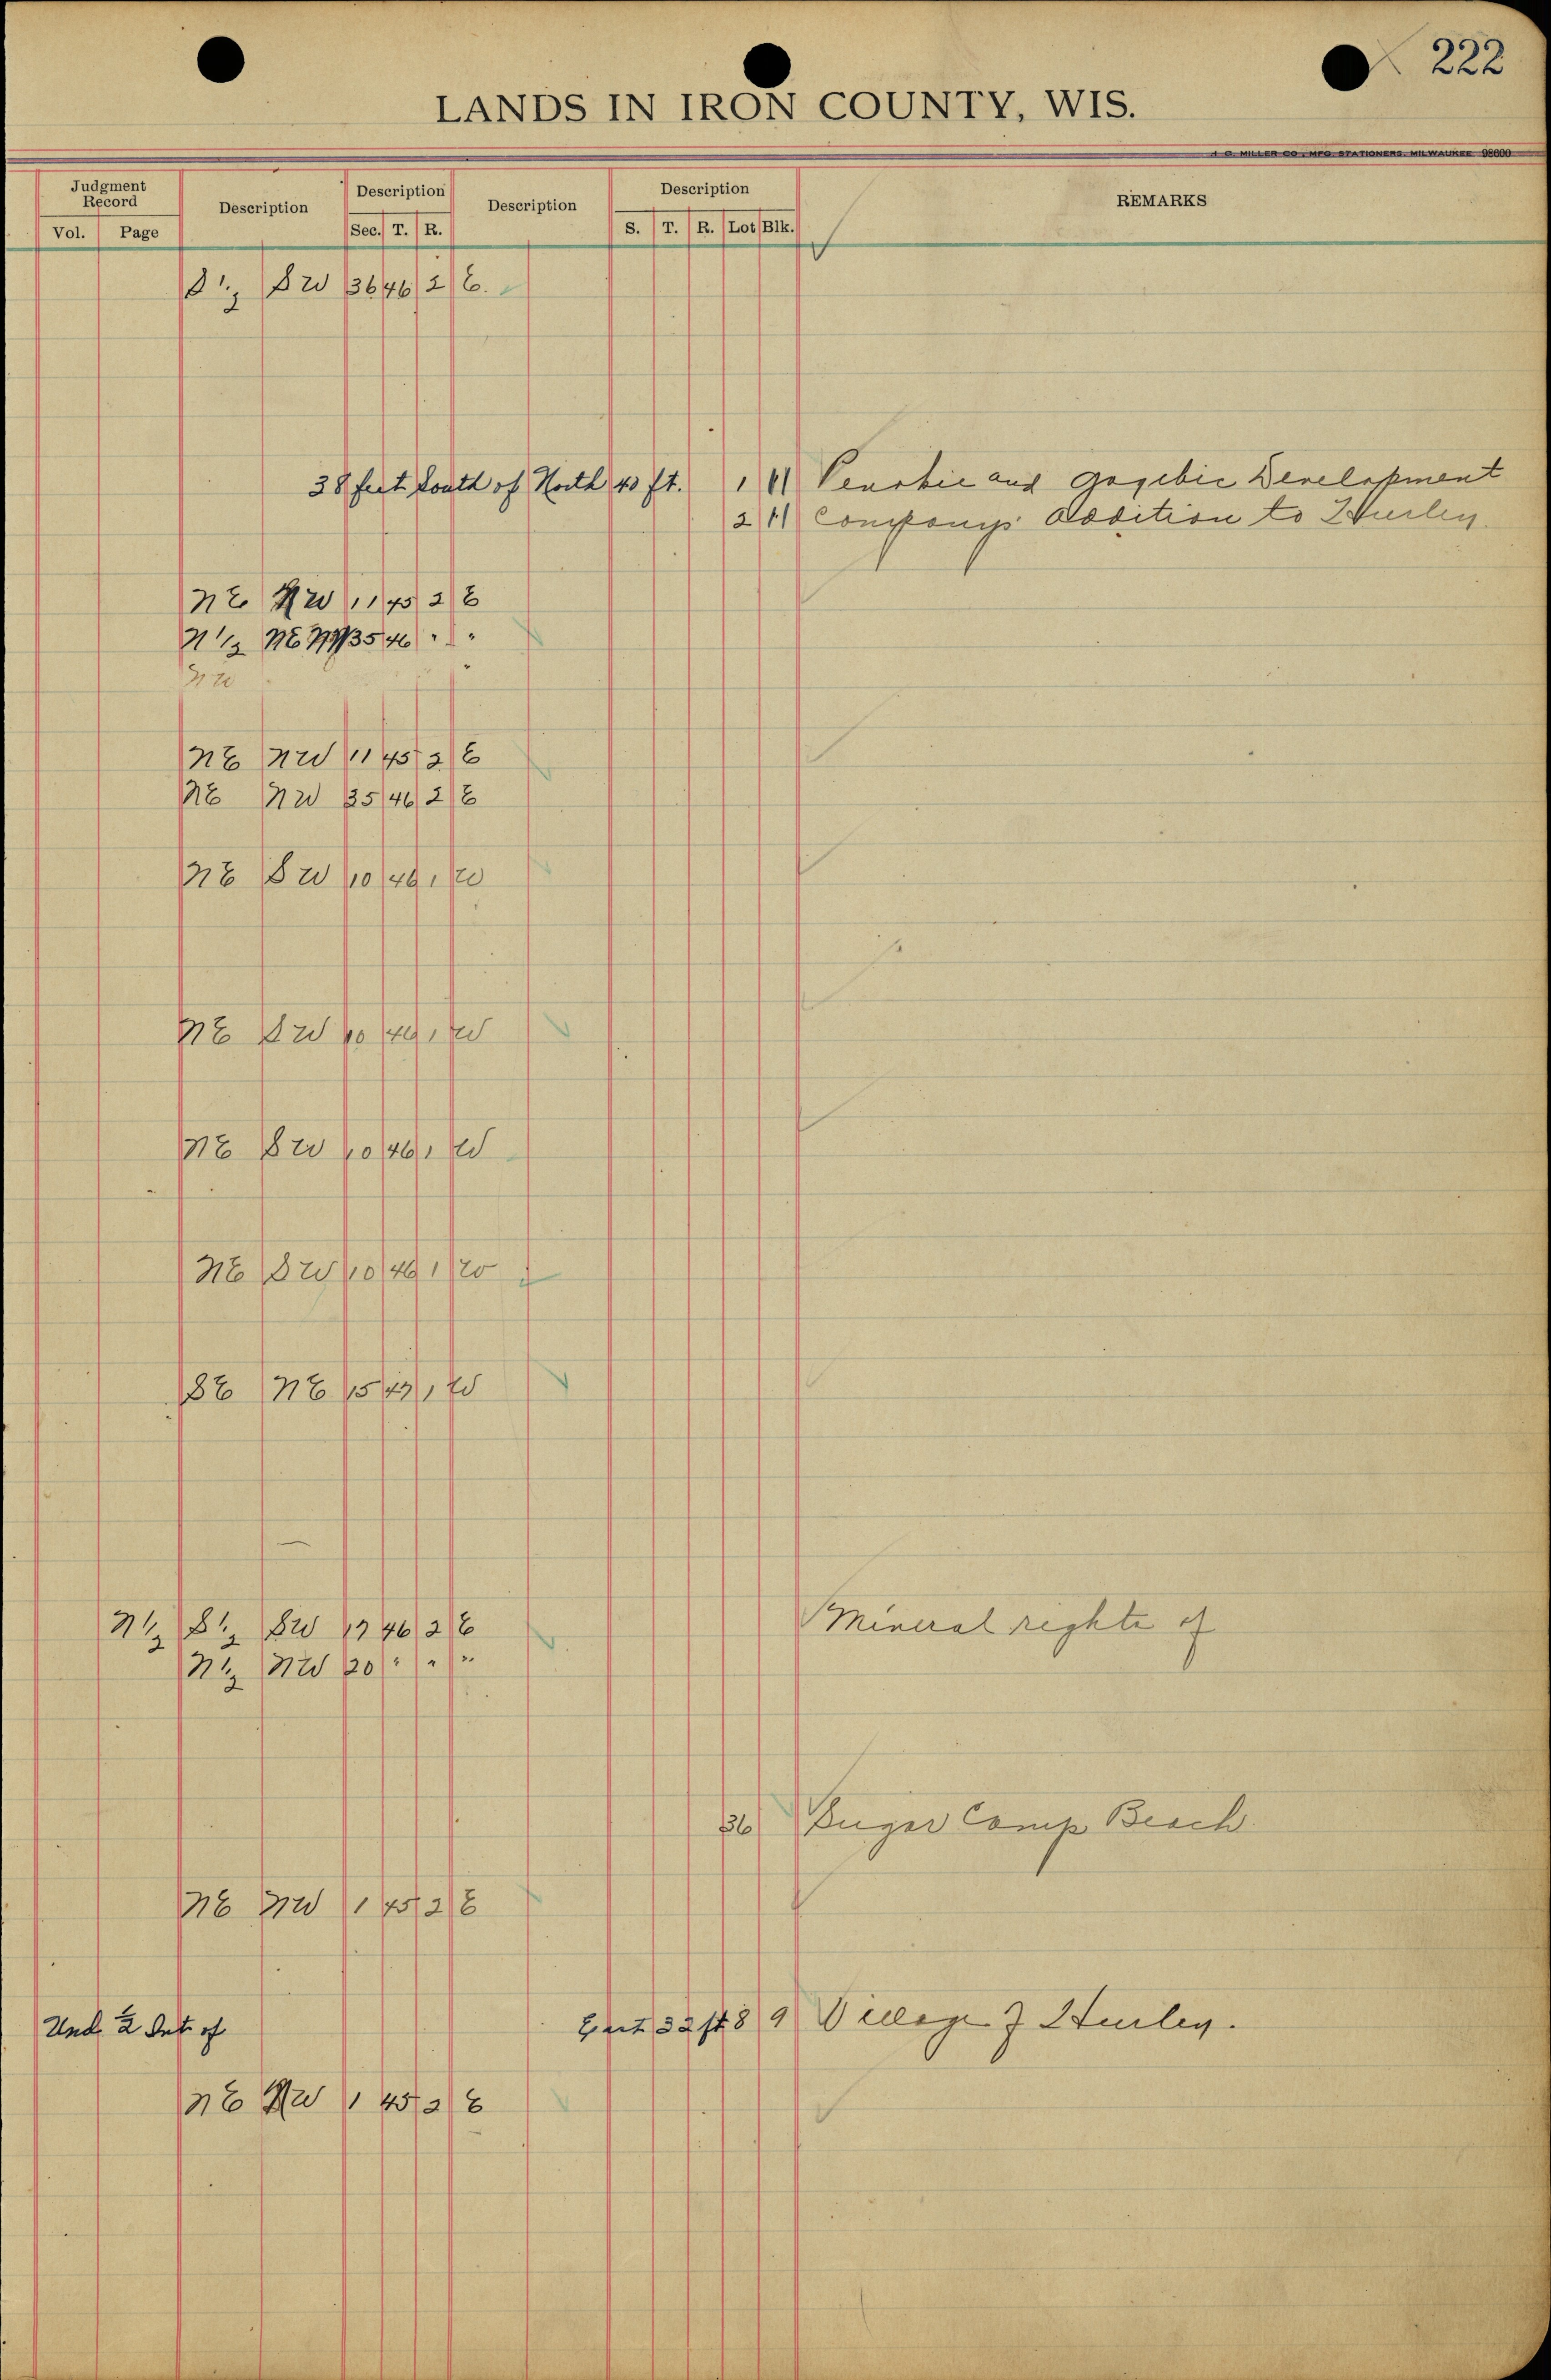 222
LANDS IN IRON COUNTY, WIS.
J. C. MILLER CO., MFG. STATIONERS, MILWAUKEE 98600
Judgment Record Description Description Description Description REMARKS
Vol. Page Sec. T. R. S. T. R. Lot Blk.
S 1/2 SW 36 46 2 E.
38 feet South of North 40 ft. 1 11 Penokie and Gogebic Development
2 11 Companys Addition to Hurley.
NE NW 1 45 2 E
N 1/2 NE NW 35 46 " "
NW
NE NW 11 45 2 E
NE NW 35 46 2 E
NE SW 10 46 1 W
NE SW 10 46 1 W
NE SW 10 46 1 W
NE SW 10 46 1 W
SE NE 15 47 1 W
N 1/2 S 1/2 SW 17 46 2 E Mineral rights of
N 1/2 NW 20 " " "
36 Sugar Camp Beach
NE NW 1 45 2 E
Und 1/2 Int of East 32 ft 8 9 Village of Hurley.
NE NW 1 45 2 E